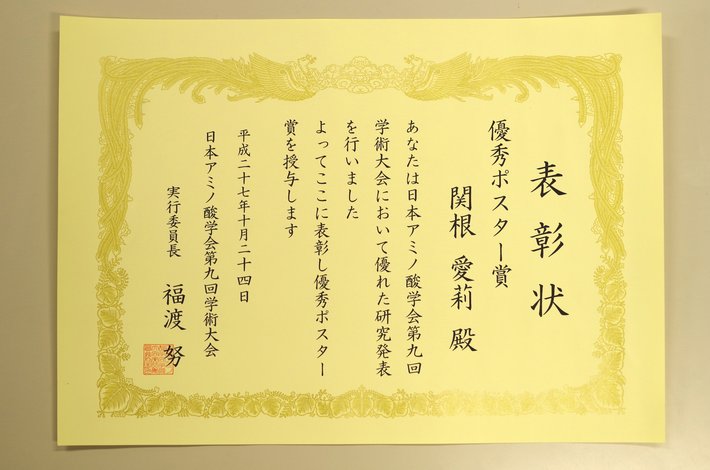 表彰状
優秀ポスター賞
関根 愛莉 殿
あなたは日本アミノ酸学会第九回
学術大会において優れた研究発表
を行いました
よってここに表彰し優秀ポスター
賞を授与します
平成二十七年十月二十四日
日本アミノ酸学会第九回学術大会
実行委員長 福渡 努